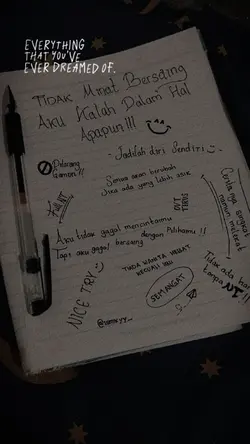 EVERYTHING
THAT YOU'VE
EVER DREAMED OF.
TIDAK Minat Bersaing
AKU Kalah Dalam Hal
Apapun!!!
Dilarang
Gamon!!
- Jadilah diri Sendiri -
Semua akan berubah
Jika ada yang lebih asik
Aku tidak gagal mencintaimu
Tapi aku gagal bersaing dengan Pilihanmu!!
NICE TRY
TIADA WANITA HEBAT
KECUALI
SEMANGAT
Tidak ada hari
tanpa